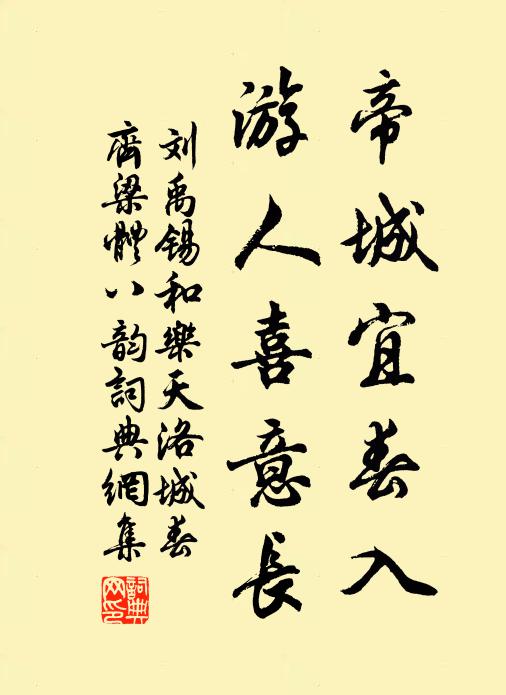 帝城宜春入
游人喜意長
刘禹锡和樂天洛城春
齊梁體八韵詞典網集
詞典網印